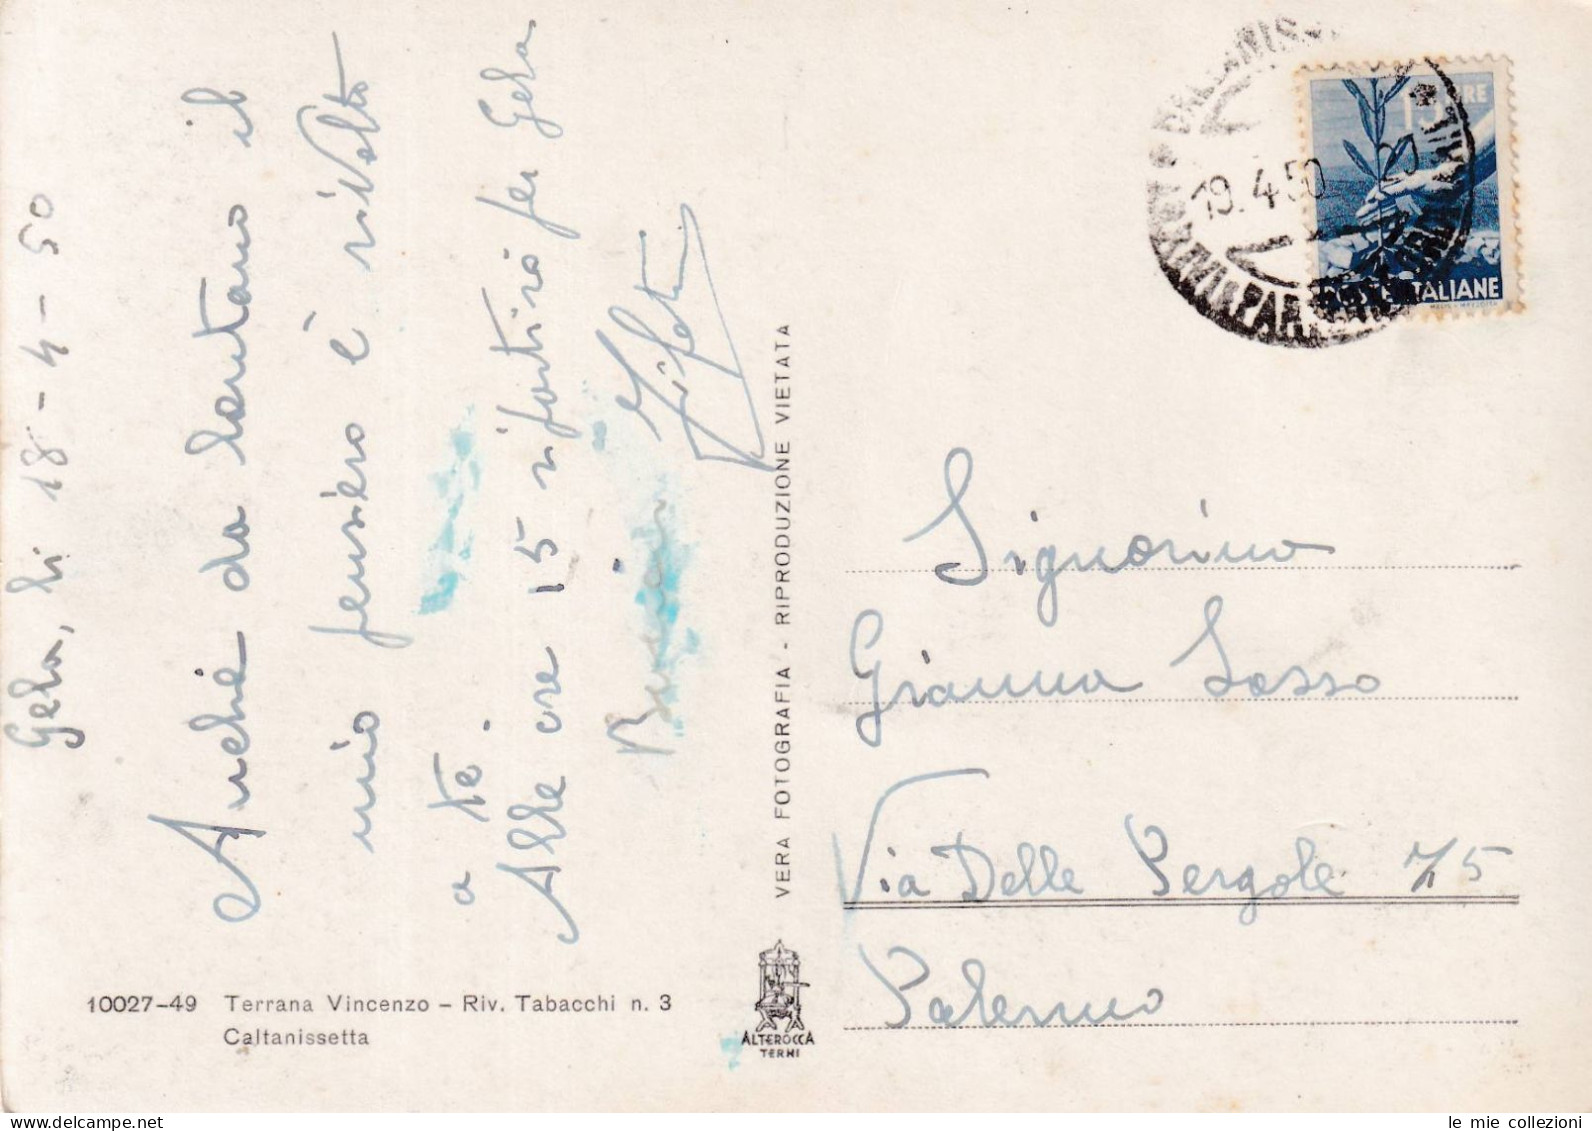 Gela, li 18-4-50
Anche da lontano il
mio pensiero è rivolto
a te.
Alle ore 15 riparto per Gela
10027-49 Terrana Vincenzo - Riv. Tabacchi n. 3
Caltanissetta
VERA FOTOGRAFIA - RIPRODUZIONE VIETATA
ALTEROCCA
TERNI
19.4.50
15 LIRE
POSTE ITALIANE
Signorina
Gianna Sasso
Via Delle Pergole 75
Palermo
le mie collezioni